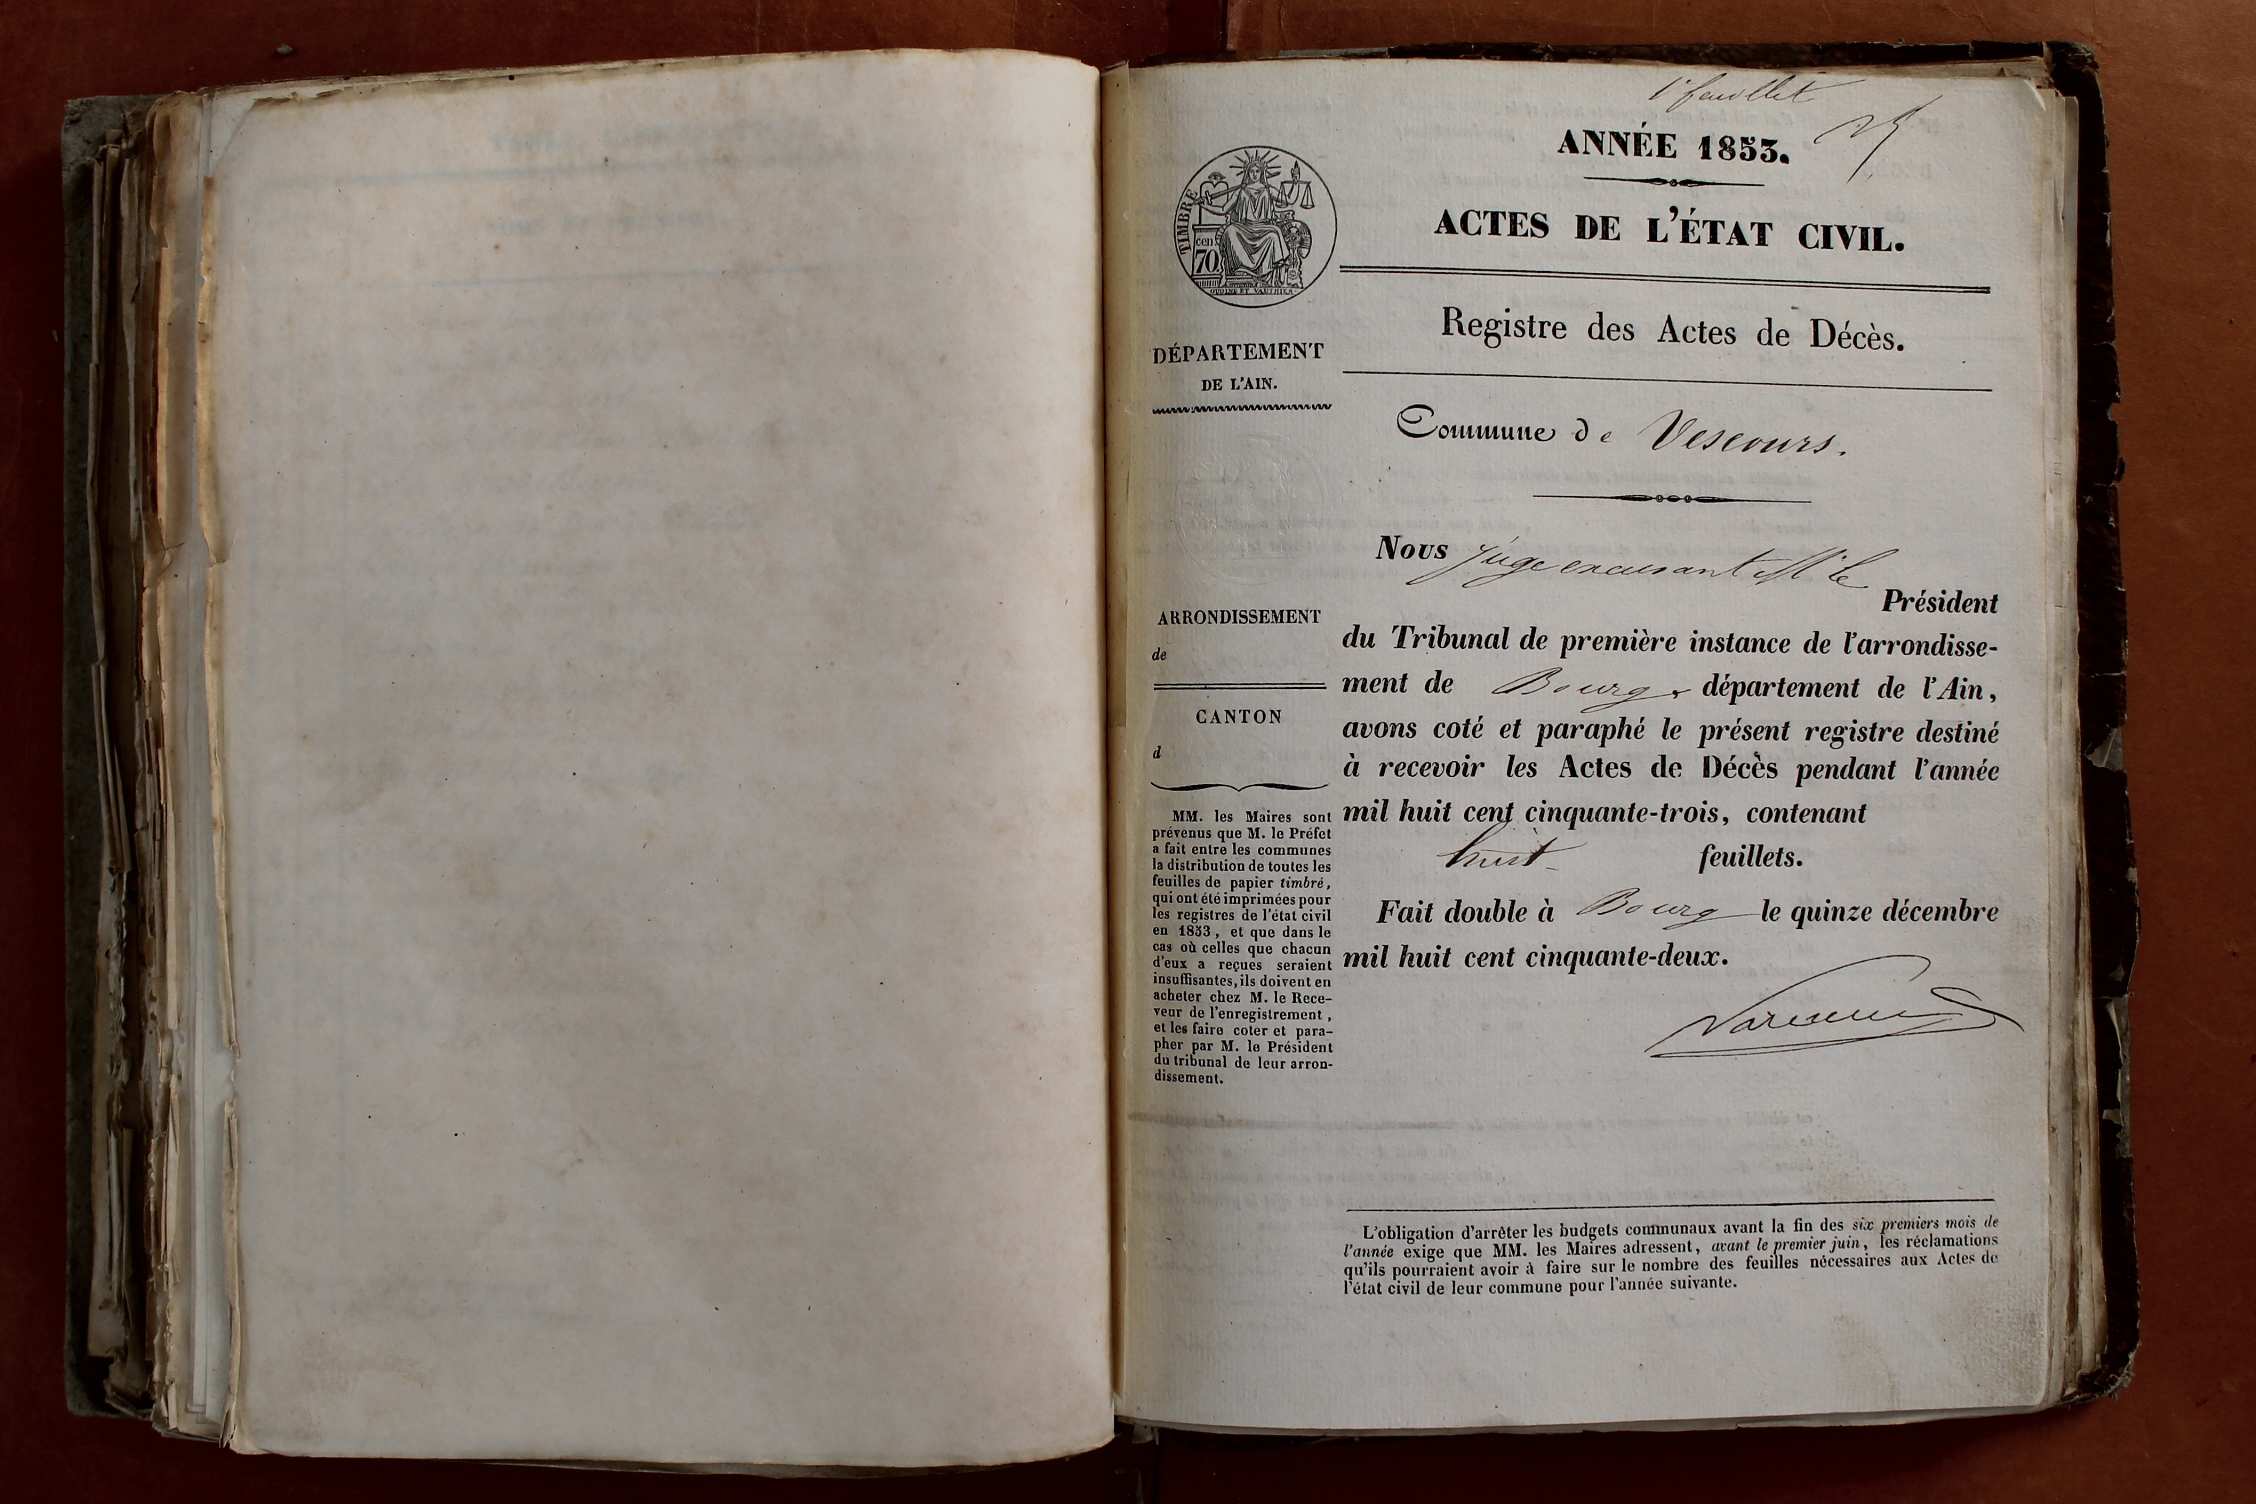 1er feuillet
ANNÉE 1853.
ACTES DE L'ÉTAT CIVIL.
TIMBRE
70 cen
OUDINÉ ET VAUTHIER
Registre des Actes de Décès.
DÉPARTEMENT
DE L'AIN.
Commune de Vescours.
ARRONDISSEMENT
de
CANTON
d
MM. les Maires sont
prévenus que M. le Préfet
a fait entre les communes
la distribution de toutes les
feuilles de papier timbré,
qui ont été imprimées pour
les registres de l'état civil
en 1853, et que dans le
cas où celles que chacun
d'eux a reçues seraient
insuffisantes, ils doivent en
acheter chez M. le Rece-
veur de l'enregistrement,
et les faire coter et para-
pher par M. le Président
du tribunal de leur arron-
dissement.
Nous juge excusant Mr le
Président
du Tribunal de première instance de l'arrondisse-
ment de Bourg, département de l'Ain,
avons coté et paraphé le présent registre destiné
à recevoir les Actes de Décès pendant l'année
mil huit cent cinquante-trois, contenant
huit feuillets.
Fait double à Bourg le quinze décembre
mil huit cent cinquante-deux.
L'obligation d'arrêter les budgets communaux avant la fin des six premiers mois de
l'année exige que MM. les Maires adressent, avant le premier juin, les réclamations
qu'ils pourraient avoir à faire sur le nombre des feuilles nécessaires aux Actes de
l'état civil de leur commune pour l'année suivante.